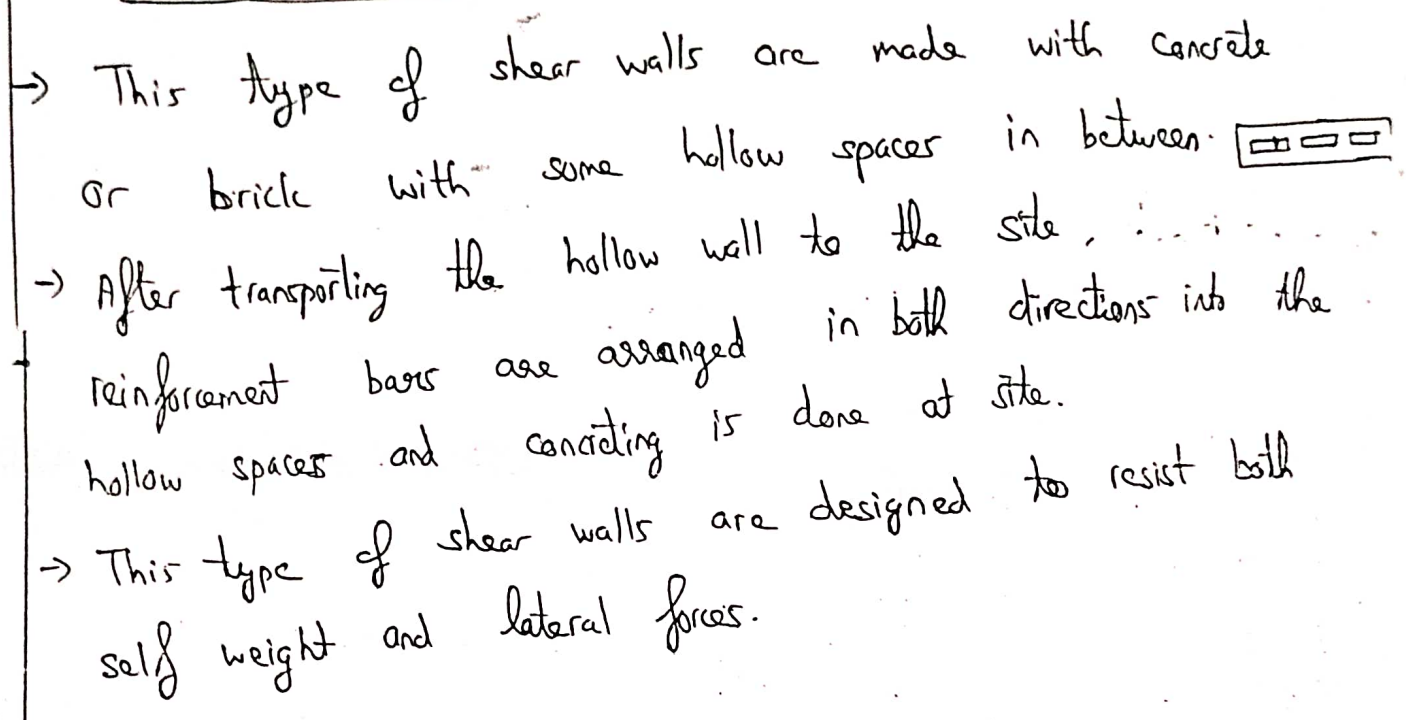 → This type of shear walls are made with concrete
or brick with some hollow spaces in between.
→ After transporting the hollow wall to the site,
reinforcement bars are arranged in both directions into the
hollow spaces and concreting is done at site.
→ This type of shear walls are designed to resist both
self weight and lateral forces.